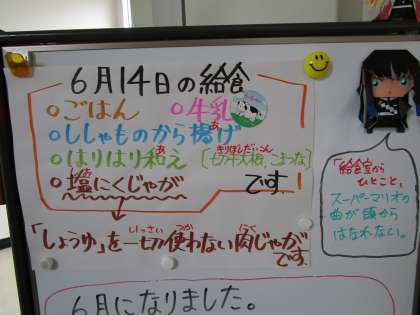 6月14日の給食
○ごはん ○牛乳
○ししゃものから揚げ
○はりはり和え [切干大根、こまつな]
○塩にくじゃが です
「しょうゆ」を一切使わない肉じゃが
です。
「給食室から
ひとこと」
スーパーマリオの
曲が頭から
はなれない。
6月になりました。